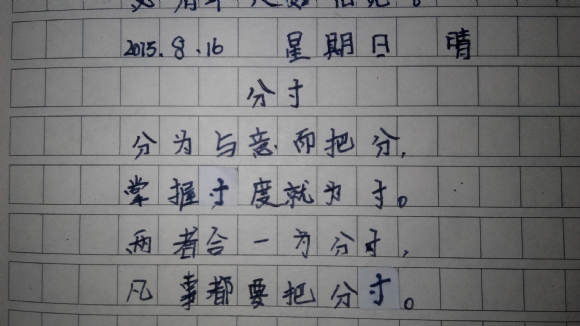 2015.8.16 星期日 晴
分寸
分为与意而把分,
掌握寸度就为寸。
两者合一为分寸,
凡事都要把分寸。